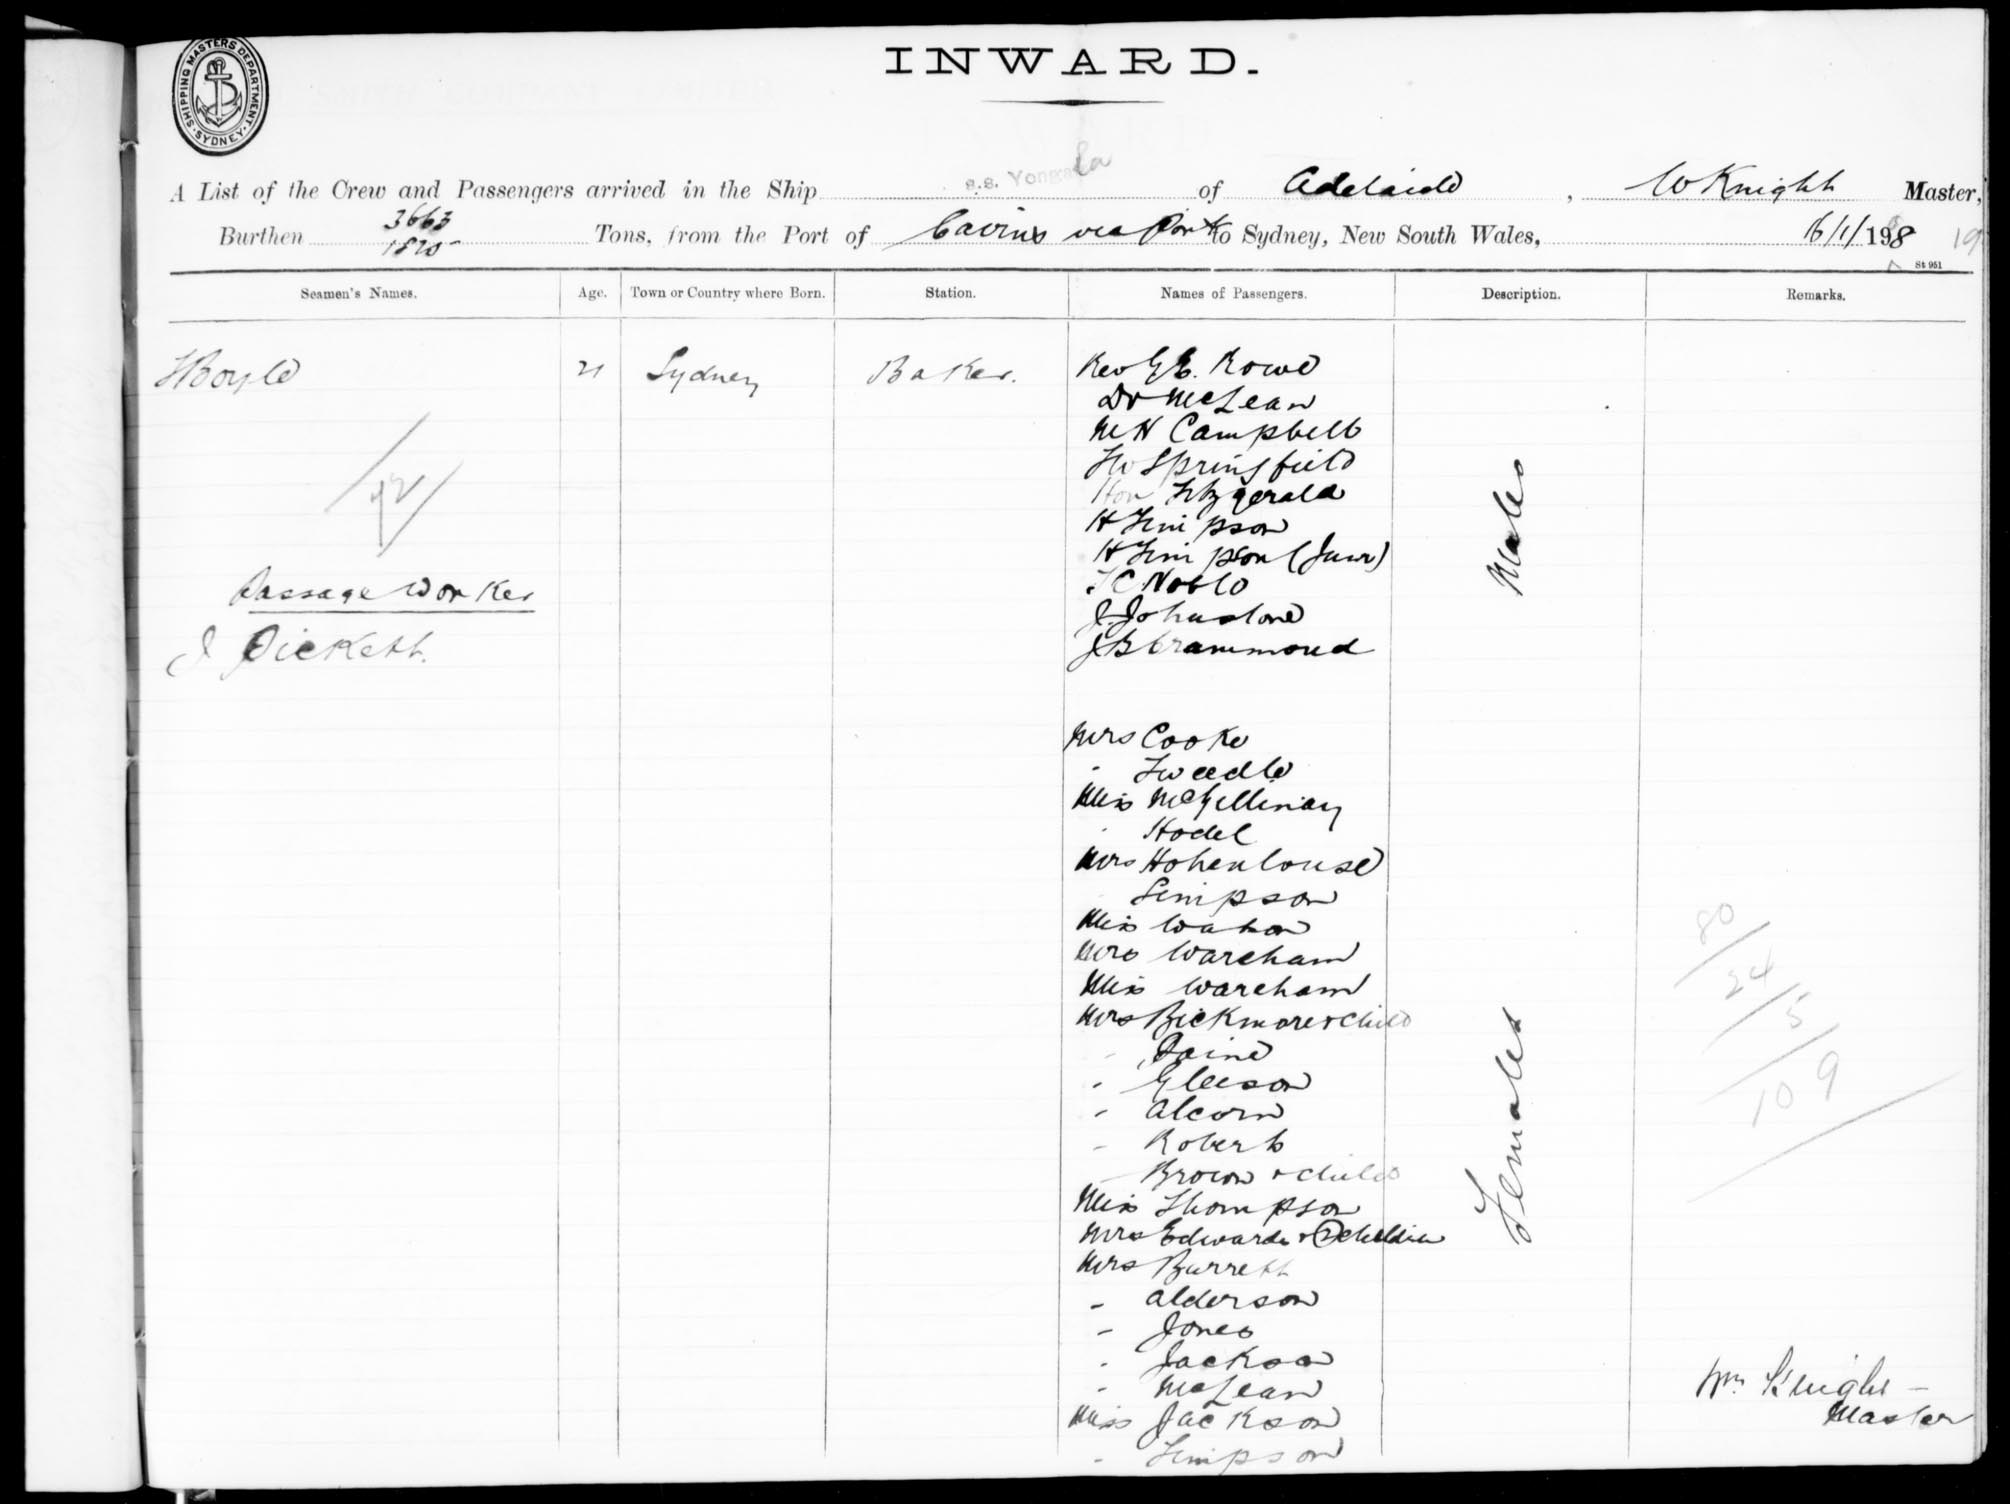 SHIPPING MASTERS DEPARTMENT. SYDNEY.
INWARD.
A List of the Crew and Passengers arrived in the Ship s.s. Yongala of Adelaide, W Knight Master,
Burthen 3663 Tons, from the Port of Cairns via Ports to Sydney, New South Wales, 16/1/1908
1825
St 951
Seamen's Names. Age. Town or Country where Born. Station. Names of Passengers. Description. Remarks.
H Boyle 21 Sydney Baker. Rev G E. Rowe
Dr McLean
M H Campbell
Springfield
Hon Fitzgerald
H Simpson
H Simpson (Junr)
Passage Worker
C Noble
J. Johnstone
J Pickett.
J B Crammond
Males
Mrs Cooke
" Tweedle
Miss McGillivray
" Hodel
Mrs Hohenlouse
" Simpson
Miss Watson
Mrs Wareham
Miss Wareham
Mrs Bickmore & Child
" Paine
" Gleeson
" Alcorn
" Roberts
" Brown & child
Miss Thompson
Mrs Edwards & 2 children
Mrs Burrett
" Alderson
" Jones
" Jackson
" McLean
Miss Jackson
" Simpson
Females
80
24
5
109
Wm Knight
Master